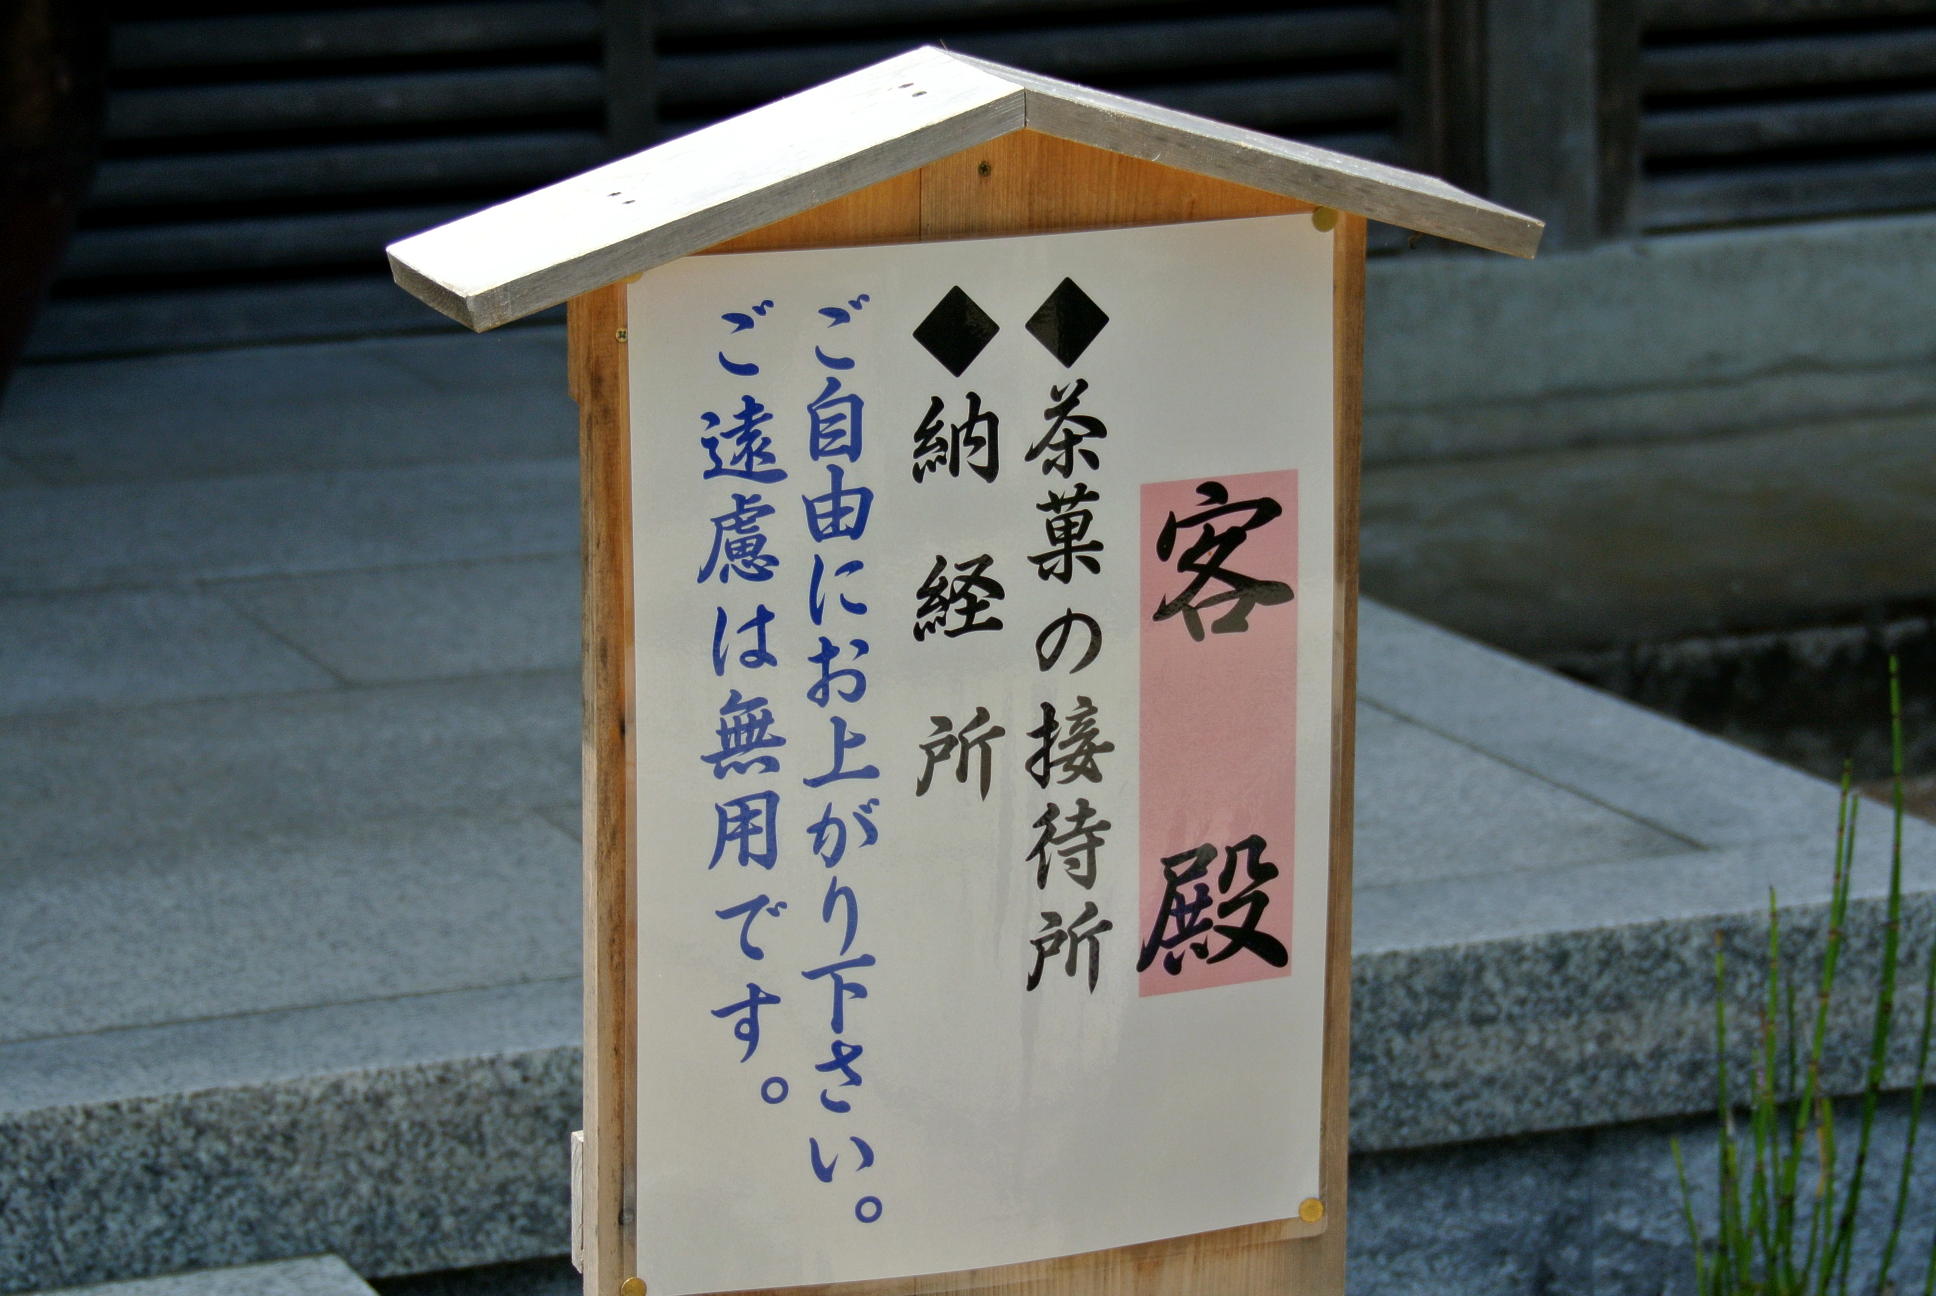 客殿
◆茶菓の接待所
◆納経所
ご自由にお上がり下さい。
ご遠慮は無用です。